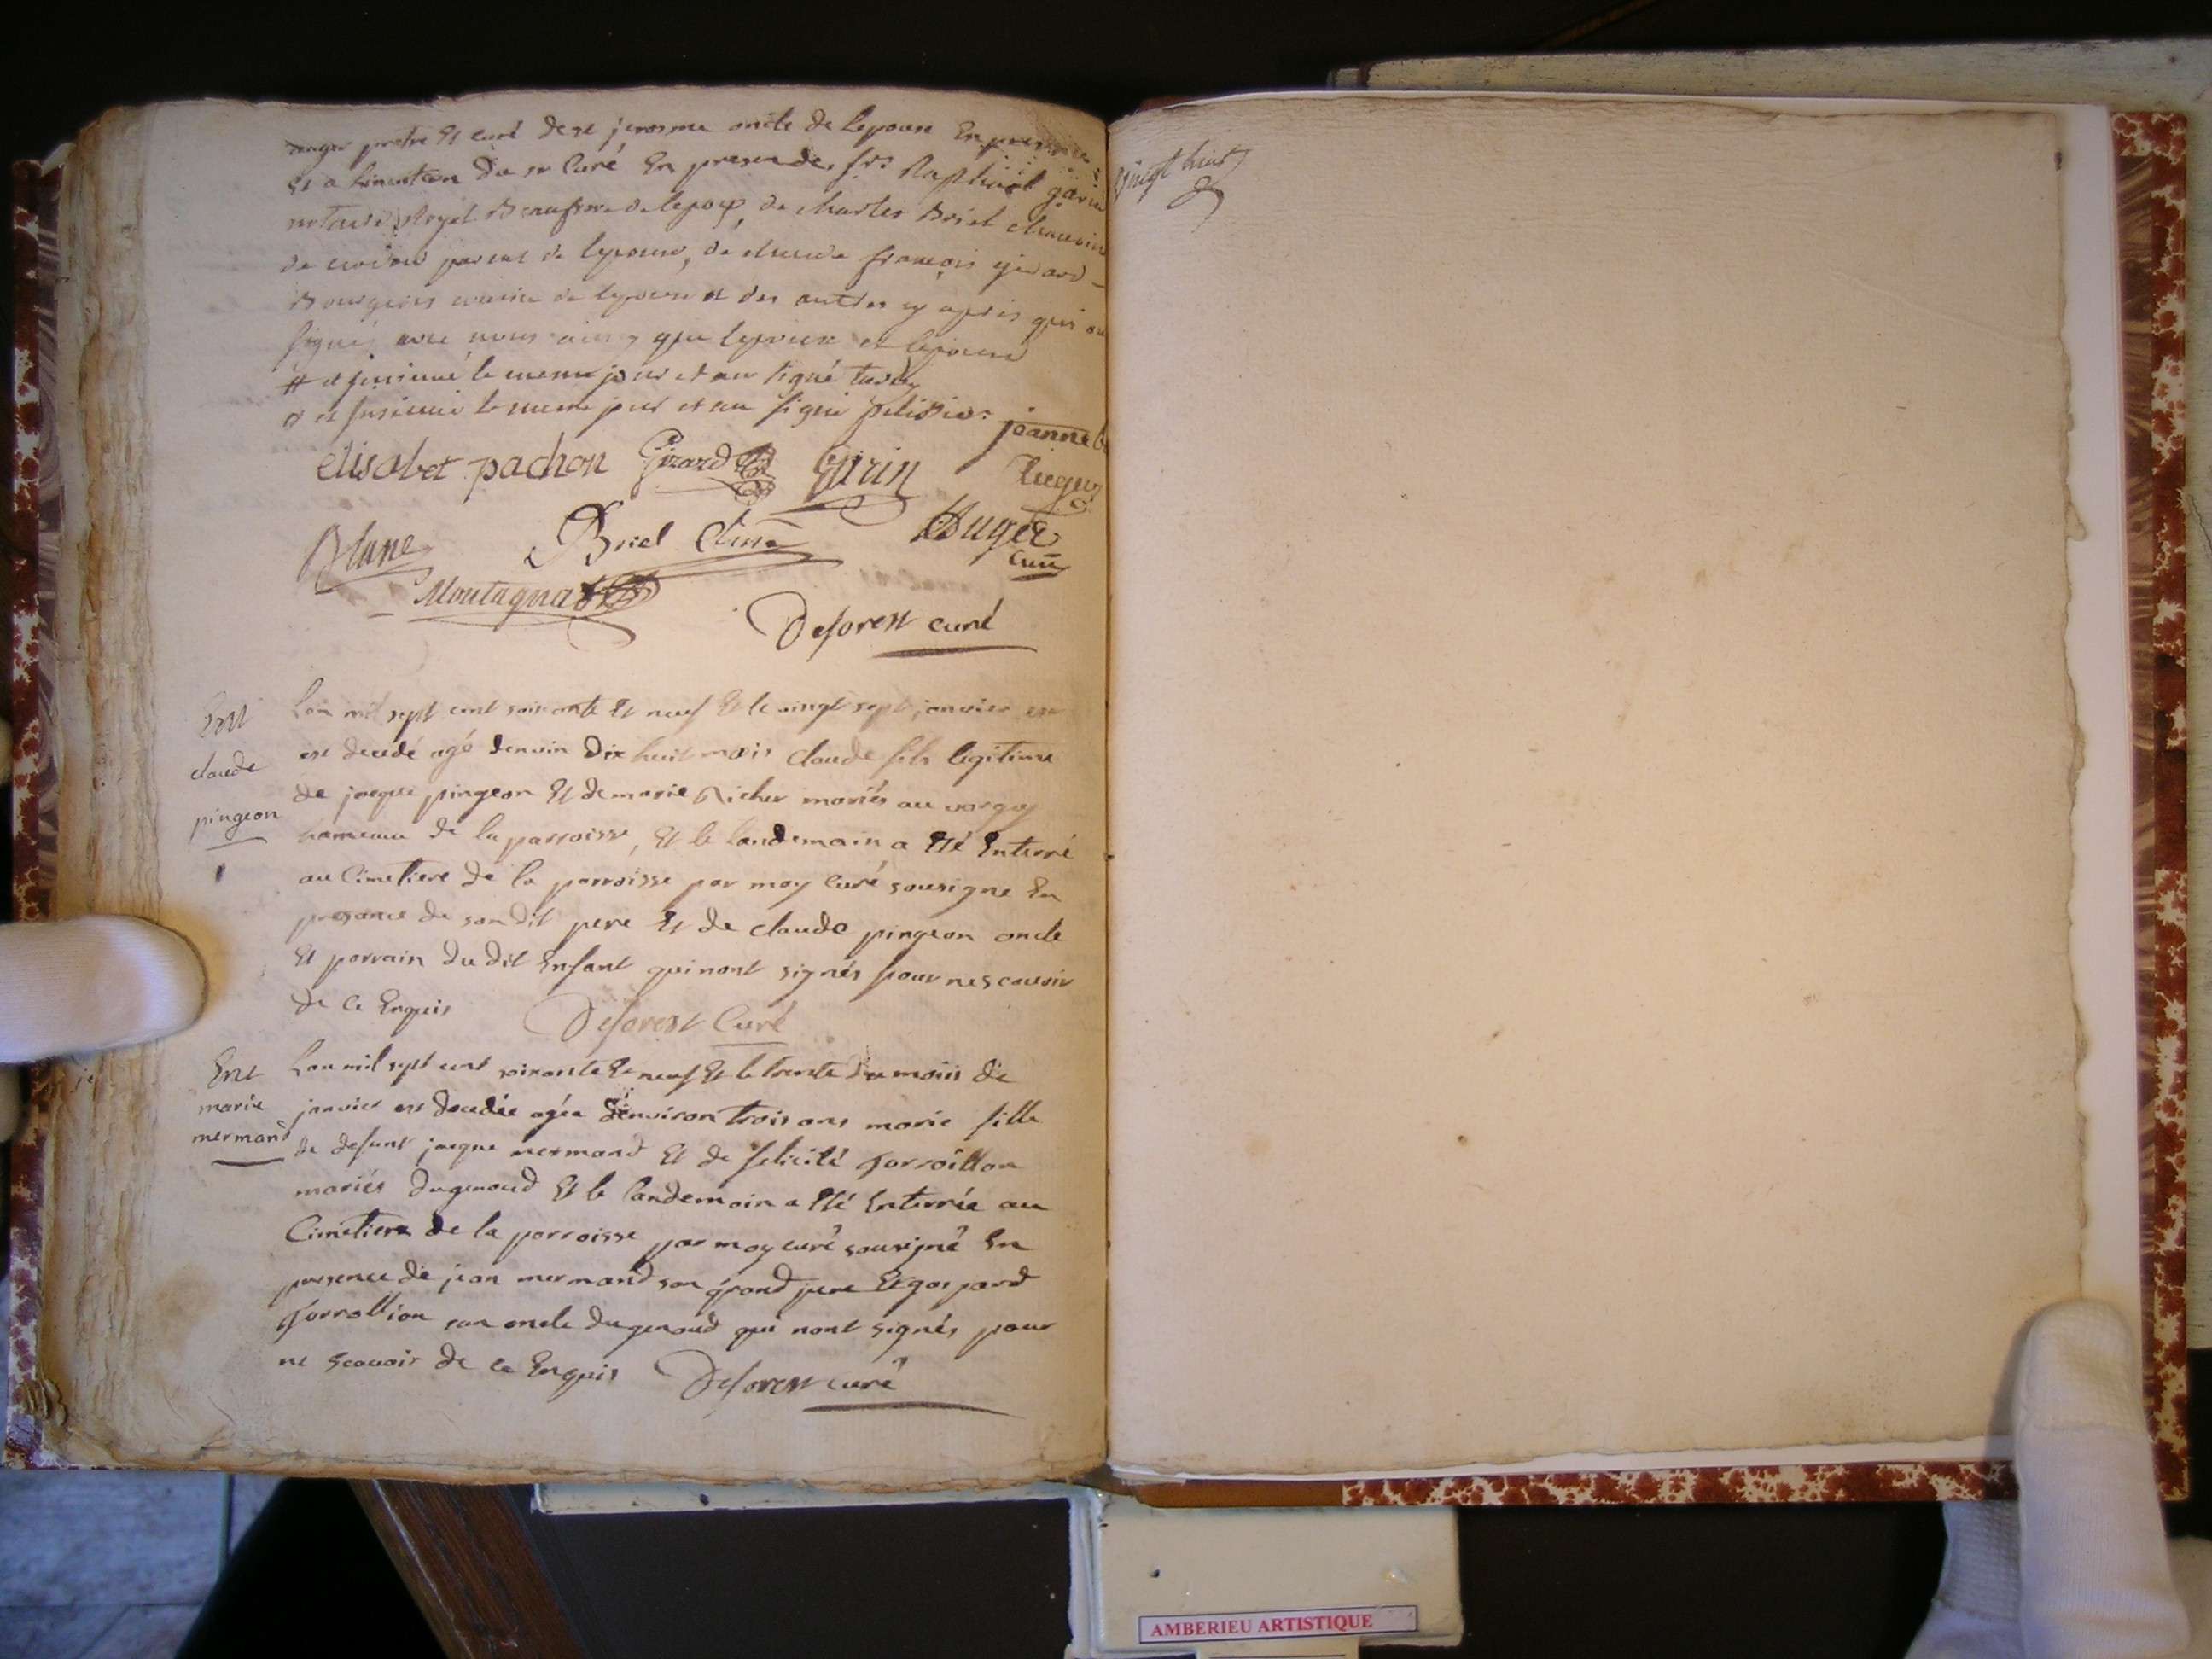 auger pretre Et curé de st jerosme oncle de lepouse En presence
Et a linvitation du sr Curé En presence de Raphael
notaire Royal de lepoux, de charles Briel chanoine
parent de lepouse, de claude françois girard
Bourgeois cousin de lepouse et des autres cy apres qui ont
signé avec nous ainsy que lepoux et lepouse
# et insinué le meme jour et an signé tardy
et insinué le meme jour et an signé pelissier
jeanne
elisabet pachon Girard Girin
Blanc Briel Chne Auger
curé
Montagnat
Deforest curé
Ent
claude
pingeon
Lan mil sept cent soixante Et neuf Et le vingt sept janvier
est decedé agé denviron Dix huit mois claude fils legitime
de jacque pingeon Et de marie Richer mariés au
hameau de la parroisse, Et le landemain a Eté Enterré
au Cimetiere de la parroisse par moy Curé sousigne En
presance de son dit pere Et de claude pingeon oncle
Et parrain du dit Enfant qui nont signés pour ne scavoir
de ce Enquis Deforest Curé
Ent
marie
mermand
Lan mil sept cent soixante Et neuf Et le trente du mois de
janvier est decedée agée denviron trois ans marie fille
de defunt jacque mermand Et de felicité
mariés dugenoud Et le landemain a Eté Enterrée au
Cimetiere de la parroisse par moy curé sousigné En
presence de jean mermand son grand pere Et gaspard
son oncle dugenoud qui nont signés pour
ne scavoir de ce Enquis Deforest curé
vingt huit
AMBERIEU ARTISTIQUE